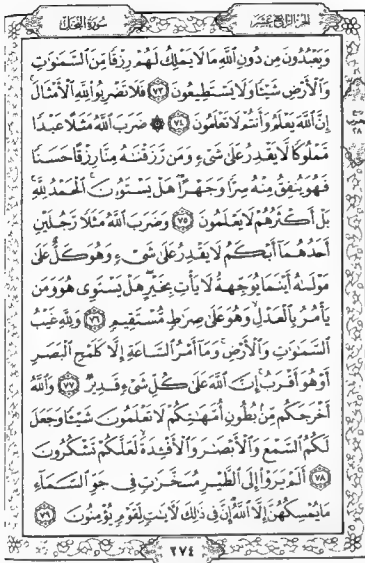 الجزء الرابع عشر
سورة النحل
وَيَعْبُدُونَ مِن دُونِ ٱللَّهِ مَا لَا يَمْلِكُ لَهُمْ رِزْقًا مِّنَ ٱلسَّمَٰوَٰتِ
وَٱلْأَرْضِ شَيْـًٔا وَلَا يَسْتَطِيعُونَ ٧٣ فَلَا تَضْرِبُوا۟ لِلَّهِ ٱلْأَمْثَالَ ۚ
إِنَّ ٱللَّهَ يَعْلَمُ وَأَنتُمْ لَا تَعْلَمُونَ ٧٤ ۞ ضَرَبَ ٱللَّهُ مَثَلًا عَبْدًا
مَّمْلُوكًا لَّا يَقْدِرُ عَلَىٰ شَىْءٍ وَمَن رَّزَقْنَٰهُ مِنَّا رِزْقًا حَسَنًا
فَهُوَ يُنفِقُ مِنْهُ سِرًّا وَجَهْرًا ۖ هَلْ يَسْتَوُۥنَ ۚ ٱلْحَمْدُ لِلَّهِ ۚ
بَلْ أَكْثَرُهُمْ لَا يَعْلَمُونَ ٧٥ وَضَرَبَ ٱللَّهُ مَثَلًا رَّجُلَيْنِ
أَحَدُهُمَآ أَبْكَمُ لَا يَقْدِرُ عَلَىٰ شَىْءٍ وَهُوَ كَلٌّ عَلَىٰ
مَوْلَىٰهُ أَيْنَمَا يُوَجِّههُّ لَا يَأْتِ بِخَيْرٍ ۖ هَلْ يَسْتَوِى هُوَ وَمَن
يَأْمُرُ بِٱلْعَدْلِ ۙ وَهُوَ عَلَىٰ صِرَٰطٍ مُّسْتَقِيمٍ ٧٦ وَلِلَّهِ غَيْبُ
ٱلسَّمَٰوَٰتِ وَٱلْأَرْضِ ۚ وَمَآ أَمْرُ ٱلسَّاعَةِ إِلَّا كَلَمْحِ ٱلْبَصَرِ
أَوْ هُوَ أَقْرَبُ ۚ إِنَّ ٱللَّهَ عَلَىٰ كُلِّ شَىْءٍ قَدِيرٌ ٧٧ وَٱللَّهُ
أَخْرَجَكُم مِّنۢ بُطُونِ أُمَّهَٰتِكُمْ لَا تَعْلَمُونَ شَيْـًٔا وَجَعَلَ
لَكُمُ ٱلسَّمْعَ وَٱلْأَبْصَٰرَ وَٱلْأَفْـِٔدَةَ ۙ لَعَلَّكُمْ تَشْكُرُونَ
٧٨ أَلَمْ يَرَوْا۟ إِلَى ٱلطَّيْرِ مُسَخَّرَٰتٍ فِى جَوِّ ٱلسَّمَآءِ
مَا يُمْسِكُهُنَّ إِلَّا ٱللَّهُ ۗ إِنَّ فِى ذَٰلِكَ لَءَايَٰتٍ لِّقَوْمٍ يُؤْمِنُونَ ٧٩
٢٧٤